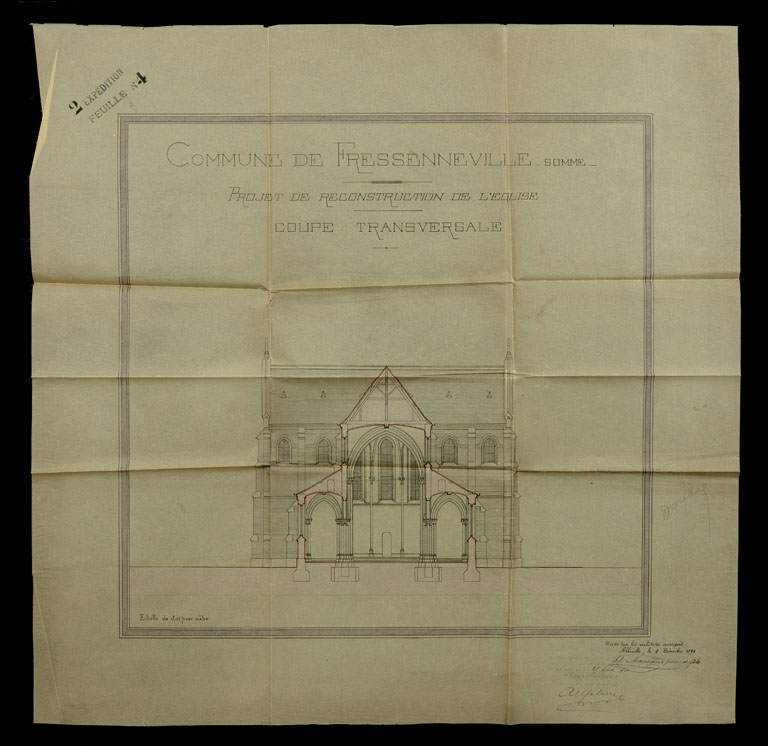 2 EXPÉDITION
FEUILLE N° 4
COMMUNE DE FRESSENNEVILLE _ SOMME _
PROJET DE RECONSTRUCTION DE L'EGLISE
COUPE TRANSVERSALE
Echelle de 0,01 pour mètre
Dressé par les architectes soussignés
Abbeville, le